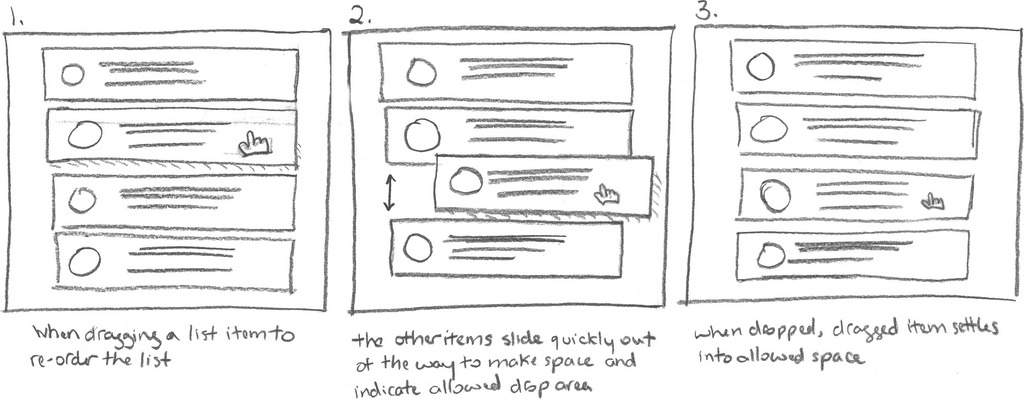 1.
when dragging a list item to
re-order the list
2.
the other items slide quickly out
of the way to make space and
indicate allowed drop area
3.
when dropped, dragged item settles
into allowed space